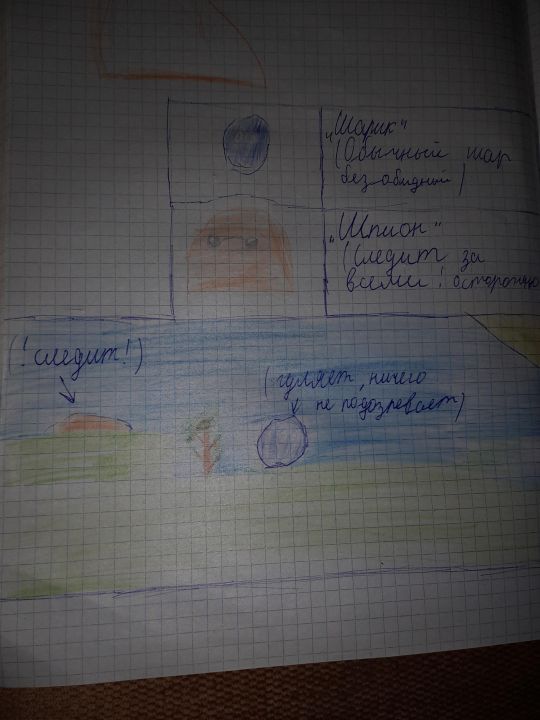 „Шарик"
(Обычный шар
безобидный)
„Шпион"
(Следит за
всеми! осторожно
(!следит!)
(гуляет, ничего
не подозревает)